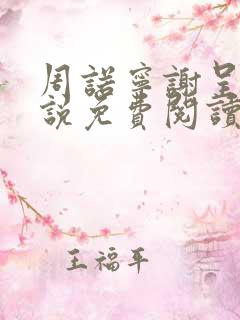 周諾寧謝呈
說免費閱讀
王福平